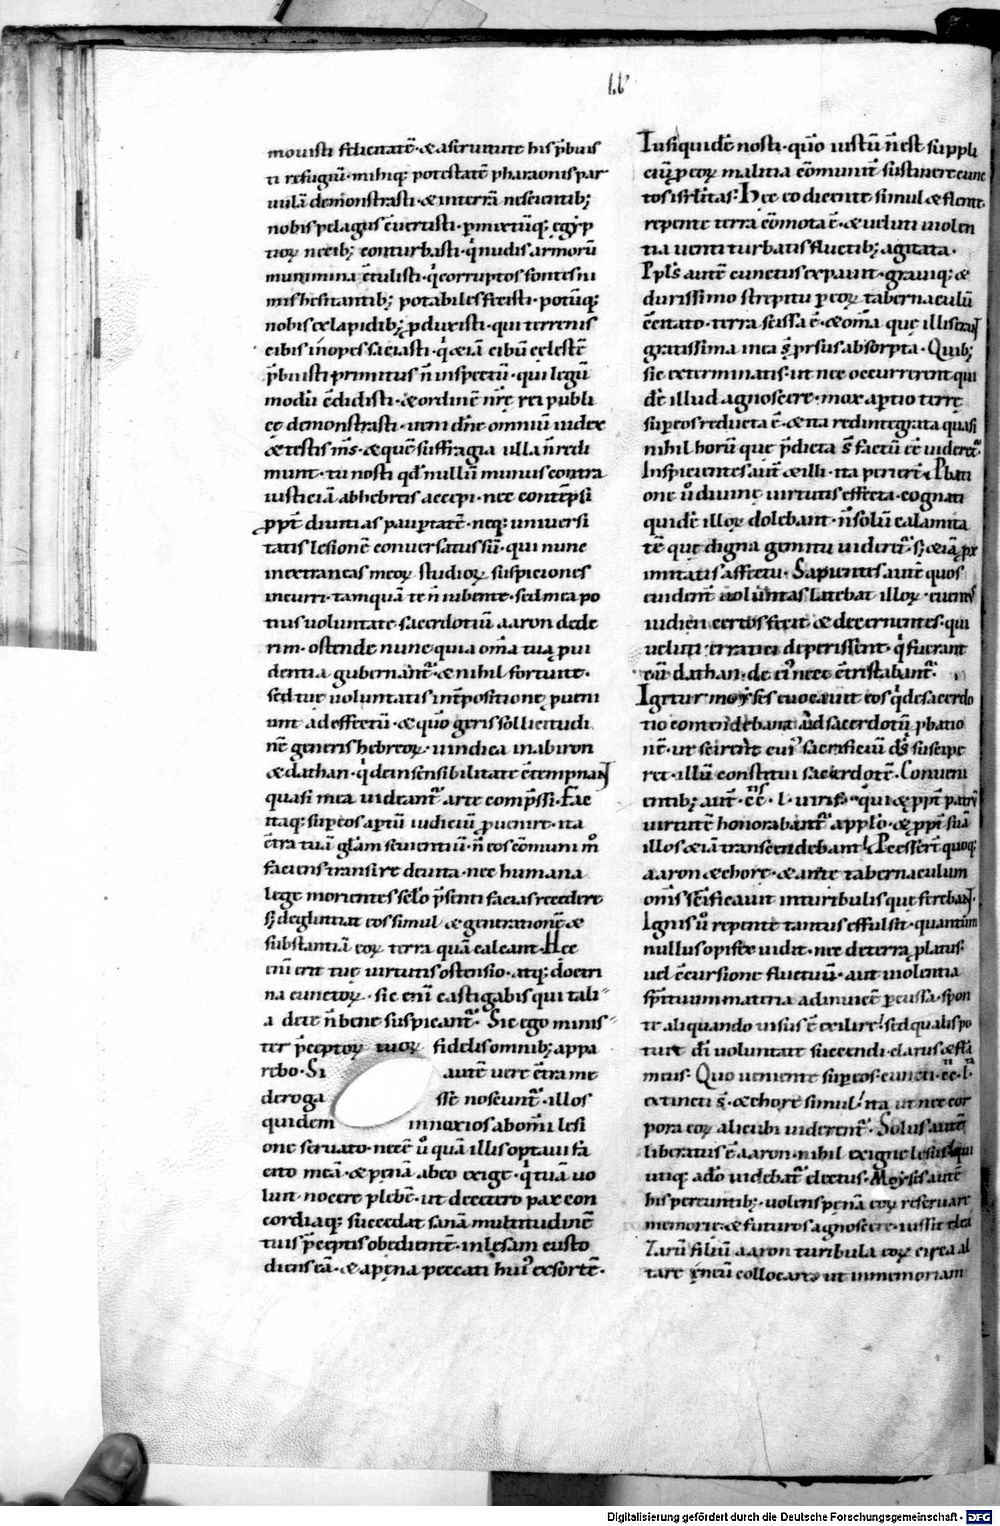 LL
mouisti st̄lienatē· & aseruitute his p̄buis
ti refugiū· mihiq; potestatē pharaonis par
uulā demonstrasti· & interrā nescientib;
nobis pelagus c̄uertisti· ꝑmixtūq; egyp
tioꝝ necib; conturbasti· q̇ nudis armorū
munimina c̄tulisti· q̇ corruptos fontis ni
mis hesitantib; potabiles fecisti· potūq;
nobis exlapidib; ꝓduxisti· qui terrenis
cibis inopes saciasti· q̇ & iā cibū cęlestē
p̄buisti primitus n̄ inspectū· qui legū
modū ēdidisti· & ordinē nr̄ę rei publi
cę demonstrasti· ueni dn̄e omniū iudex
& testis m̄s· & quē suffragia ulla n̄ redi
munt· tu nosti qd̄ nullū munus contra
iusticiā abhebreis accepi· nec contēpsi
ꝓpt̄ diuitias pauꝑtatē· neq; uniuersi
tatis lesionē conuersatus sū· qui nunc
inextraneas meoꝝ studioꝝ suspiciones
incurri· tamquā te n̄ iubente· sed mea po
tius uoluntate· sacerdotiū aaron dede
rim· ostende nunc quia om̄a tua ꝓui
dentia gubernant᷑· & nihil fortuitę·
sed tuę uoluntatis int̄positionę ꝓueni
unt adeffectū· & quō geris sollicitudi
nē generis hebreoꝝ· uindica inabiron
& dathan· q̇ deinsensibilitate c̄tempnant
quasi mea uideant᷑ arte comp̄ssi· Fac
itaq; sup̄ eos aptū iudiciū ꝓuenire· ita
c̄tra tuā gl̄am seuientiū· n̄ eos cōmuni m̊
faciens transire deuita· nec humana
lege morientes sc̄lo p̄senti facias recedere
s; deglutiat eos simul & generationē &
substantiā eoꝝ terra quā calcant· Hec
eni erit tuę uirtutis ostensio· atq; doctri
na cunctoꝝ· sic eni castigabis qui tali
a dete n̄ bene suspicant᷑· Sic ego minis
ter p̄ceptoꝝ tuoꝝ fidelis omnib; appa
rebo· Si autē uere c̄tra me
deroga sse noscunt᷑· illos
quidem innoxios abom̄i lesi
one seruato· necē ů quā illis optaui fa
cito meā· & penā abeo exige· q̇ tuā uo
luit nocere plebē· ut decetero pax con
cordiaq; succedat sanā multitudinē
tuis p̄ceptis obedientē· inlęsam custo
diens eā· & apena peccati hui᷒ exsortē·
Tu siquidē nosti· quō iustū n̄ est suppli
ciū ꝓ eoꝝ malitia cōmunit̄ sustinere cunc
tos isrl̄itas· Hęc eo dicente simul & flente·
repente terra cōmota ē· & ueluti uiolen
tia uenti turbatis fluctib; agitata·
Ppl̄s autē cunctus expauit· grauiq; &
durissimo strepitu ꝓ eoꝝ tabernaculū
c̄citato· terra scissa ē· & om̄a que illis erant
gratissima inea s̄ prsus absorpta· Quib;
sic exterminatis· ut nec occurrerent qui
dē illud agnoscere· mox aptio terrę
sup̄ eos reducta ē· & ita redintegrata quasi
nihil horū quę p̄dicta s̄ factū eē uideret᷑·
Inspicientes aut̄ & illi· ita periert̄· Pbati
one ů diuinę uirtutis effecta· cognati
quidē illoꝝ dolebant· n̄ solū calamita
tē quę digna gemitu uideret᷑· s; & iā ꝓx
imitatis affectu· Sapientes autē quos
euident̄ uoluntas latebat illoꝝ·
iudicii certos fecit & decernentes· qui
ueluti erratici deperissent· q̇ fuerant
cū dathan· de ei᷒ nece c̄tristabant᷑·
Igitur moyses euocauit eos q̇ desacerdo
tio contendebant ad sacerdotū ꝓbatio
nē· ut scirent cui᷒ sacrificiū ds̄ suscipe
ret· illū constitui sacerdotē· Conueni
entib; aut̄· cc· l· uiris· qui & ꝓpt̄ patrū
uirtutē honorabant᷑ applō· & ꝓpt̄ suā
illos & iā transcendebant· Pcesserť quoq;
aaron & chore· & ante tabernaculum
om̄s sc̄ificauit inturibulis quę ferebant·
Ignis ů repente tantus effulsit· quantum
nullus opifex uidit· nec deterrę platus·
uel c̄cursione fluctuū· aut uiolentia
sp̄ituum materia adinuicē ꝑcussa· spon
te aliquando uisus ē exilire· sed qualis po
tuit dī uoluntate succendi· clarus & flā
meus· Quo ueniente sup̄ eos· cuncti· cc· l·
extincti s̄· & chore simul· ita ut nec cor
pora eoꝝ alicubi uiderent᷑· Solus autē
liberatus ē aaron· nihil exigne lesus· qui
utiq; adō uidebat᷑ electus· Moyses autē
his pereuntib;· uolens penā eoꝝ reseruare
memorię· & futuros agnoscere· iussit elea
zarū filiū aaron turibula eoꝝ circa al
tare ęneū collocare· ut inmemoriam
Digitalisierung gefördert durch die Deutsche Forschungsgemeinschaft - DFG